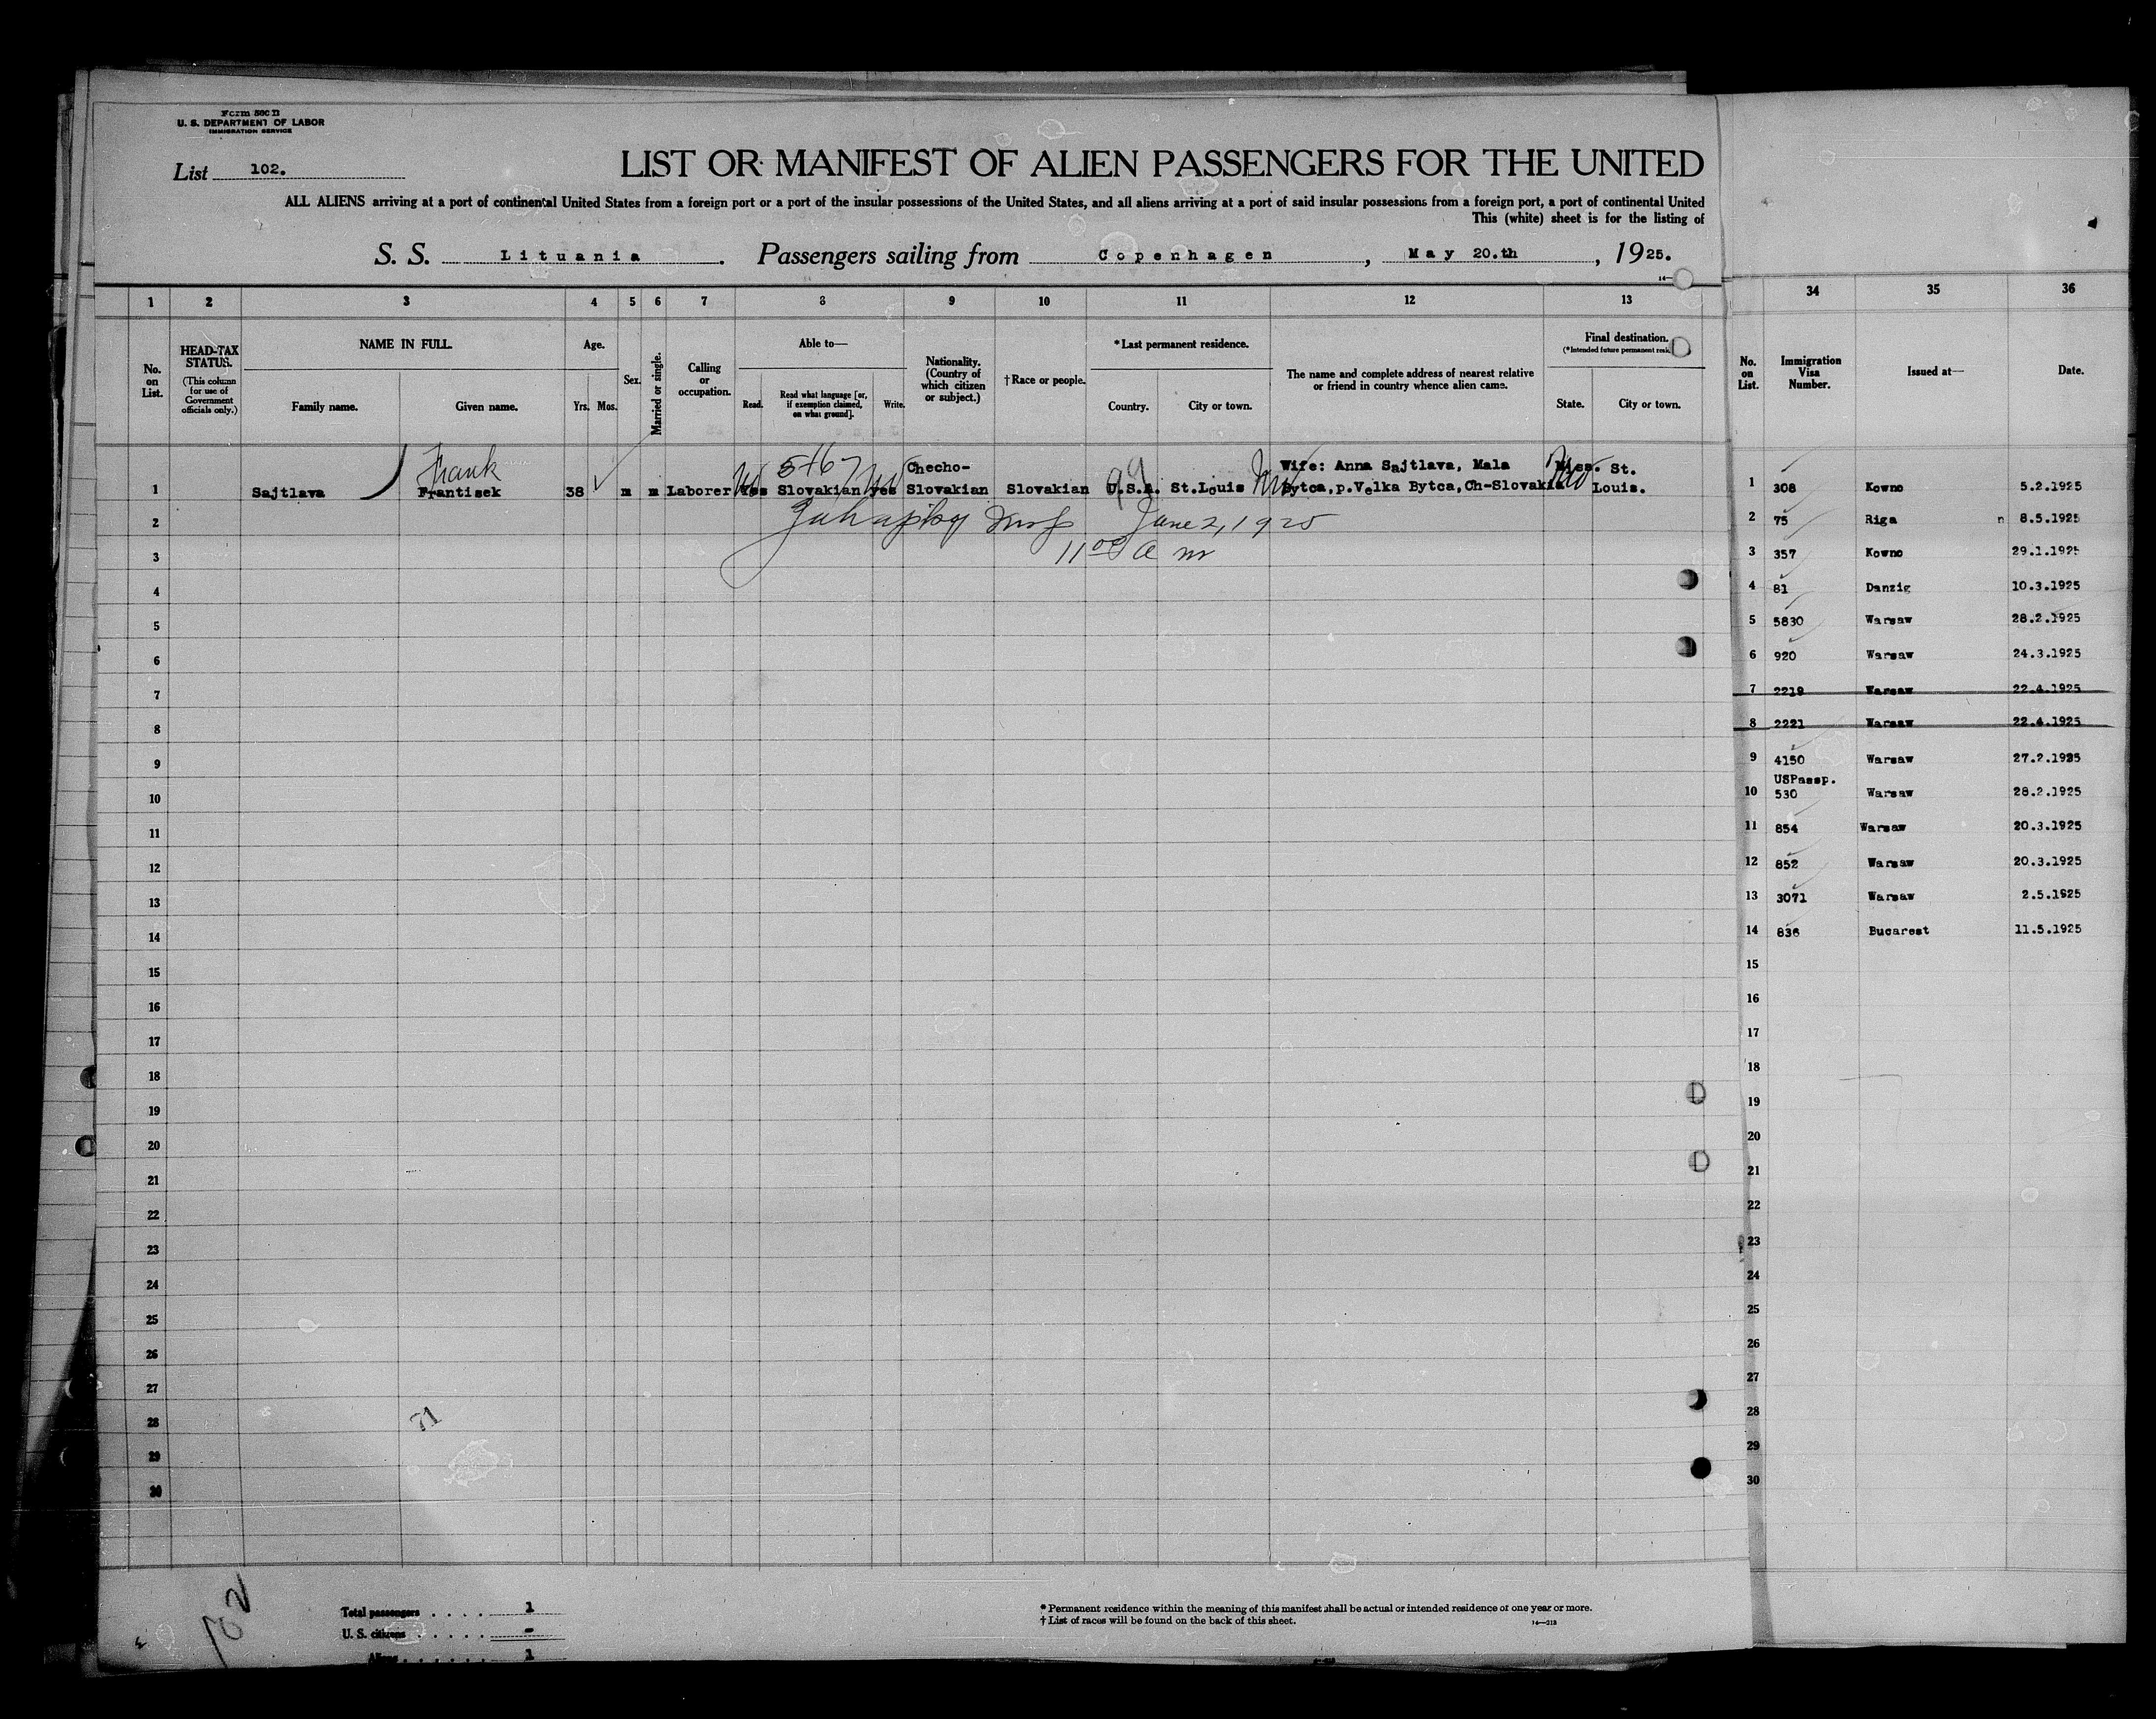 Form 500 B
U. S. DEPARTMENT OF LABOR
IMMIGRATION SERVICE
List 102.
LIST OR MANIFEST OF ALIEN PASSENGERS FOR THE UNITED
ALL ALIENS arriving at a port of continental United States from a foreign port or a port of the insular possessions of the United States, and all aliens arriving at a port of said insular possessions from a foreign port, a port of continental United
This (white) sheet is for the listing of
S. S. Lituania. Passengers sailing from Copenhagen, May 20.th, 1925.
1 2 3 4 5 6 7 8 9 10 11 12 13
No. on List.
HEAD-TAX STATUS.
(This column for use of Government officials only.)
NAME IN FULL.
Family name. Given name.
Age.
Yrs. Mos.
Sex.
Married or single.
Calling or occupation.
Able to—
Read. Read what language [or, if exemption claimed, on what ground]. Write.
Nationality. (Country of which citizen or subject.)
†Race or people.
*Last permanent residence.
Country. City or town.
The name and complete address of nearest relative or friend in country whence alien came.
Final destination.
(*Intended future permanent resid
State. City or town.
Frank 5467 Checho- Wife: Anna Sajtlava, Mala St.
1 Sajtlava Frantisek 38 m m Laborer Yes Slovakian yes Slovakian Slovakian U.S.A. St.Louis Bytca,p.Velka Bytca,Ch-Slovakia Louis.
2 June 2, 1925
3 11 00 a m
4
5
6
7
8
9
10
11
12
13
14
15
16
17
18
19
20
21
22
23
24
25
26
27
28
29
30
71
102
Total passengers . . . . 1
U. S. citizens . . . . . -
Aliens . . . . . . 1
* Permanent residence within the meaning of this manifest shall be actual or intended residence of one year or more.
† List of races will be found on the back of this sheet.
14—218
34 35 36
No. on List. Immigration Visa Number. Issued at— Date.
1 308 Kowno 5.2.1925
2 75 Riga n 8.5.1925
3 357 Kowno 29.1.1925
4 81 Danzig 10.3.1925
5 5830 Warsaw 28.2.1925
6 920 Warsaw 24.3.1925
7 2219 Warsaw 22.4.1925
8 2221 Warsaw 22.4.1925
9 4150 Warsaw 27.2.1925
USPassp.
10 530 Warsaw 28.2.1925
11 854 Warsaw 20.3.1925
12 852 Warsaw 20.3.1925
13 3071 Warsaw 2.5.1925
14 836 Bucarest 11.5.1925
15
16
17
18
19
20
21
22
23
24
25
26
27
28
29
30